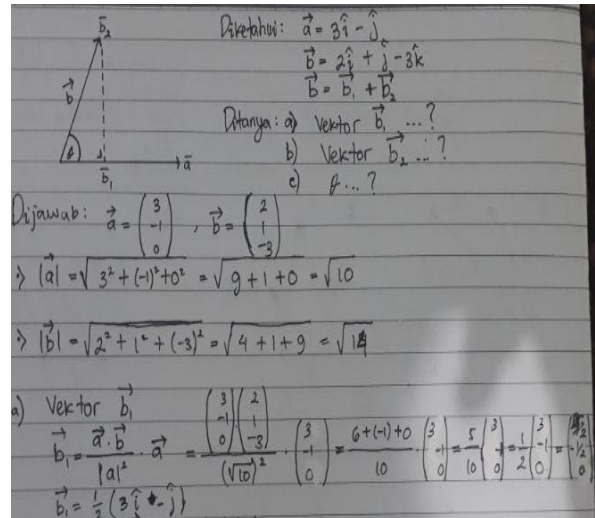 b̄₂
b⃗
θ
b̄₁
ā
Diketahui: a⃗ = 3î - ĵ
b⃗ = 2î + ĵ - 3k̂
b⃗ = b⃗₁ + b⃗₂
Ditanya: a) Vektor b⃗₁ ...?
b) Vektor b⃗₂ ...?
c) θ ...?
Dijawab: a⃗ = (3 -1 0), b⃗ = (2 1 -3)
∴) |a⃗| = √(3² + (-1)² + 0²) = √(9 + 1 + 0) = √10
∴) |b⃗| = √(2² + 1² + (-3)²) = √(4 + 1 + 9) = √14
a) Vektor b⃗₁
b⃗₁ = (a⃗ · b⃗)/|a|² · a⃗ = (3 -1 0)(2 1 -3)/(√10)² · (3 -1 0) = (6 + (-1) + 0)/10 · (3 -1 0) = 5/10 (3 -1 0) = 1/2 (3 -1 0) = (3/2 -1/2 0)
b⃗₁ = 1/2 (3î - ĵ)